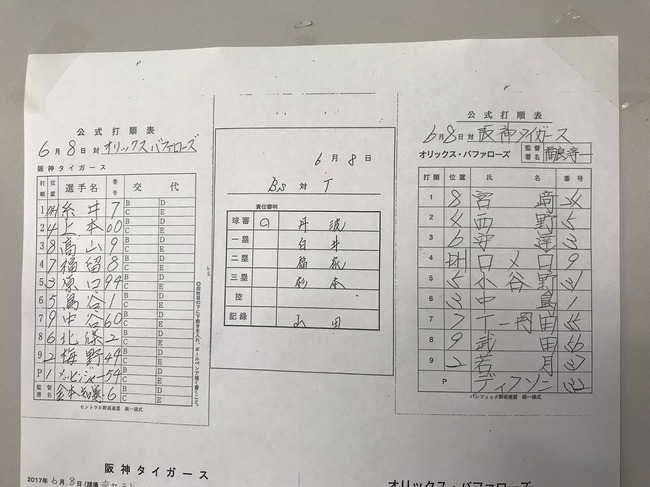 公式打順表
6月8日対オリックスバファローズ
阪神タイガース
打順 位置 選手名 番号 交代
1 DH 糸井 7 B D C E
2 4 上本 00 B D C E
3 8 高山 9 B D C E
4 7 福留 8 B D C E
5 3 原口 94 B D C E
6 5 鳥谷 1 B D C E
7 9 中谷 60 B D C E
8 6 北條 2 B D C E
9 2 梅野 44 B D C E
P 1 メッセンジャー 54 B D C E
監督署名 金本知憲 6
セントラル野球連盟 統一様式
6月8日
Bs 対 T
責任審判
球審 丹波
一塁 白井
二塁
三塁 杉本
控
記録 山田
公式打順表
6月8日対阪神タイガース
オリックス・バファローズ 監督署名 福良淳一
打順 位置 氏名 番号
1 8 宮崎
2 4 西野 5
3 6 安達 3
4 DH ロメロ 9
5 5 小谷野 31
6 3 中島 1
7 7 T-岡田 55
8 9 武田 56
9 2 若月 37
P ディクソン 32
パシフィック野球連盟 統一様式
阪神タイガース
2017年6月8日(球場
オリックス・バファローズ